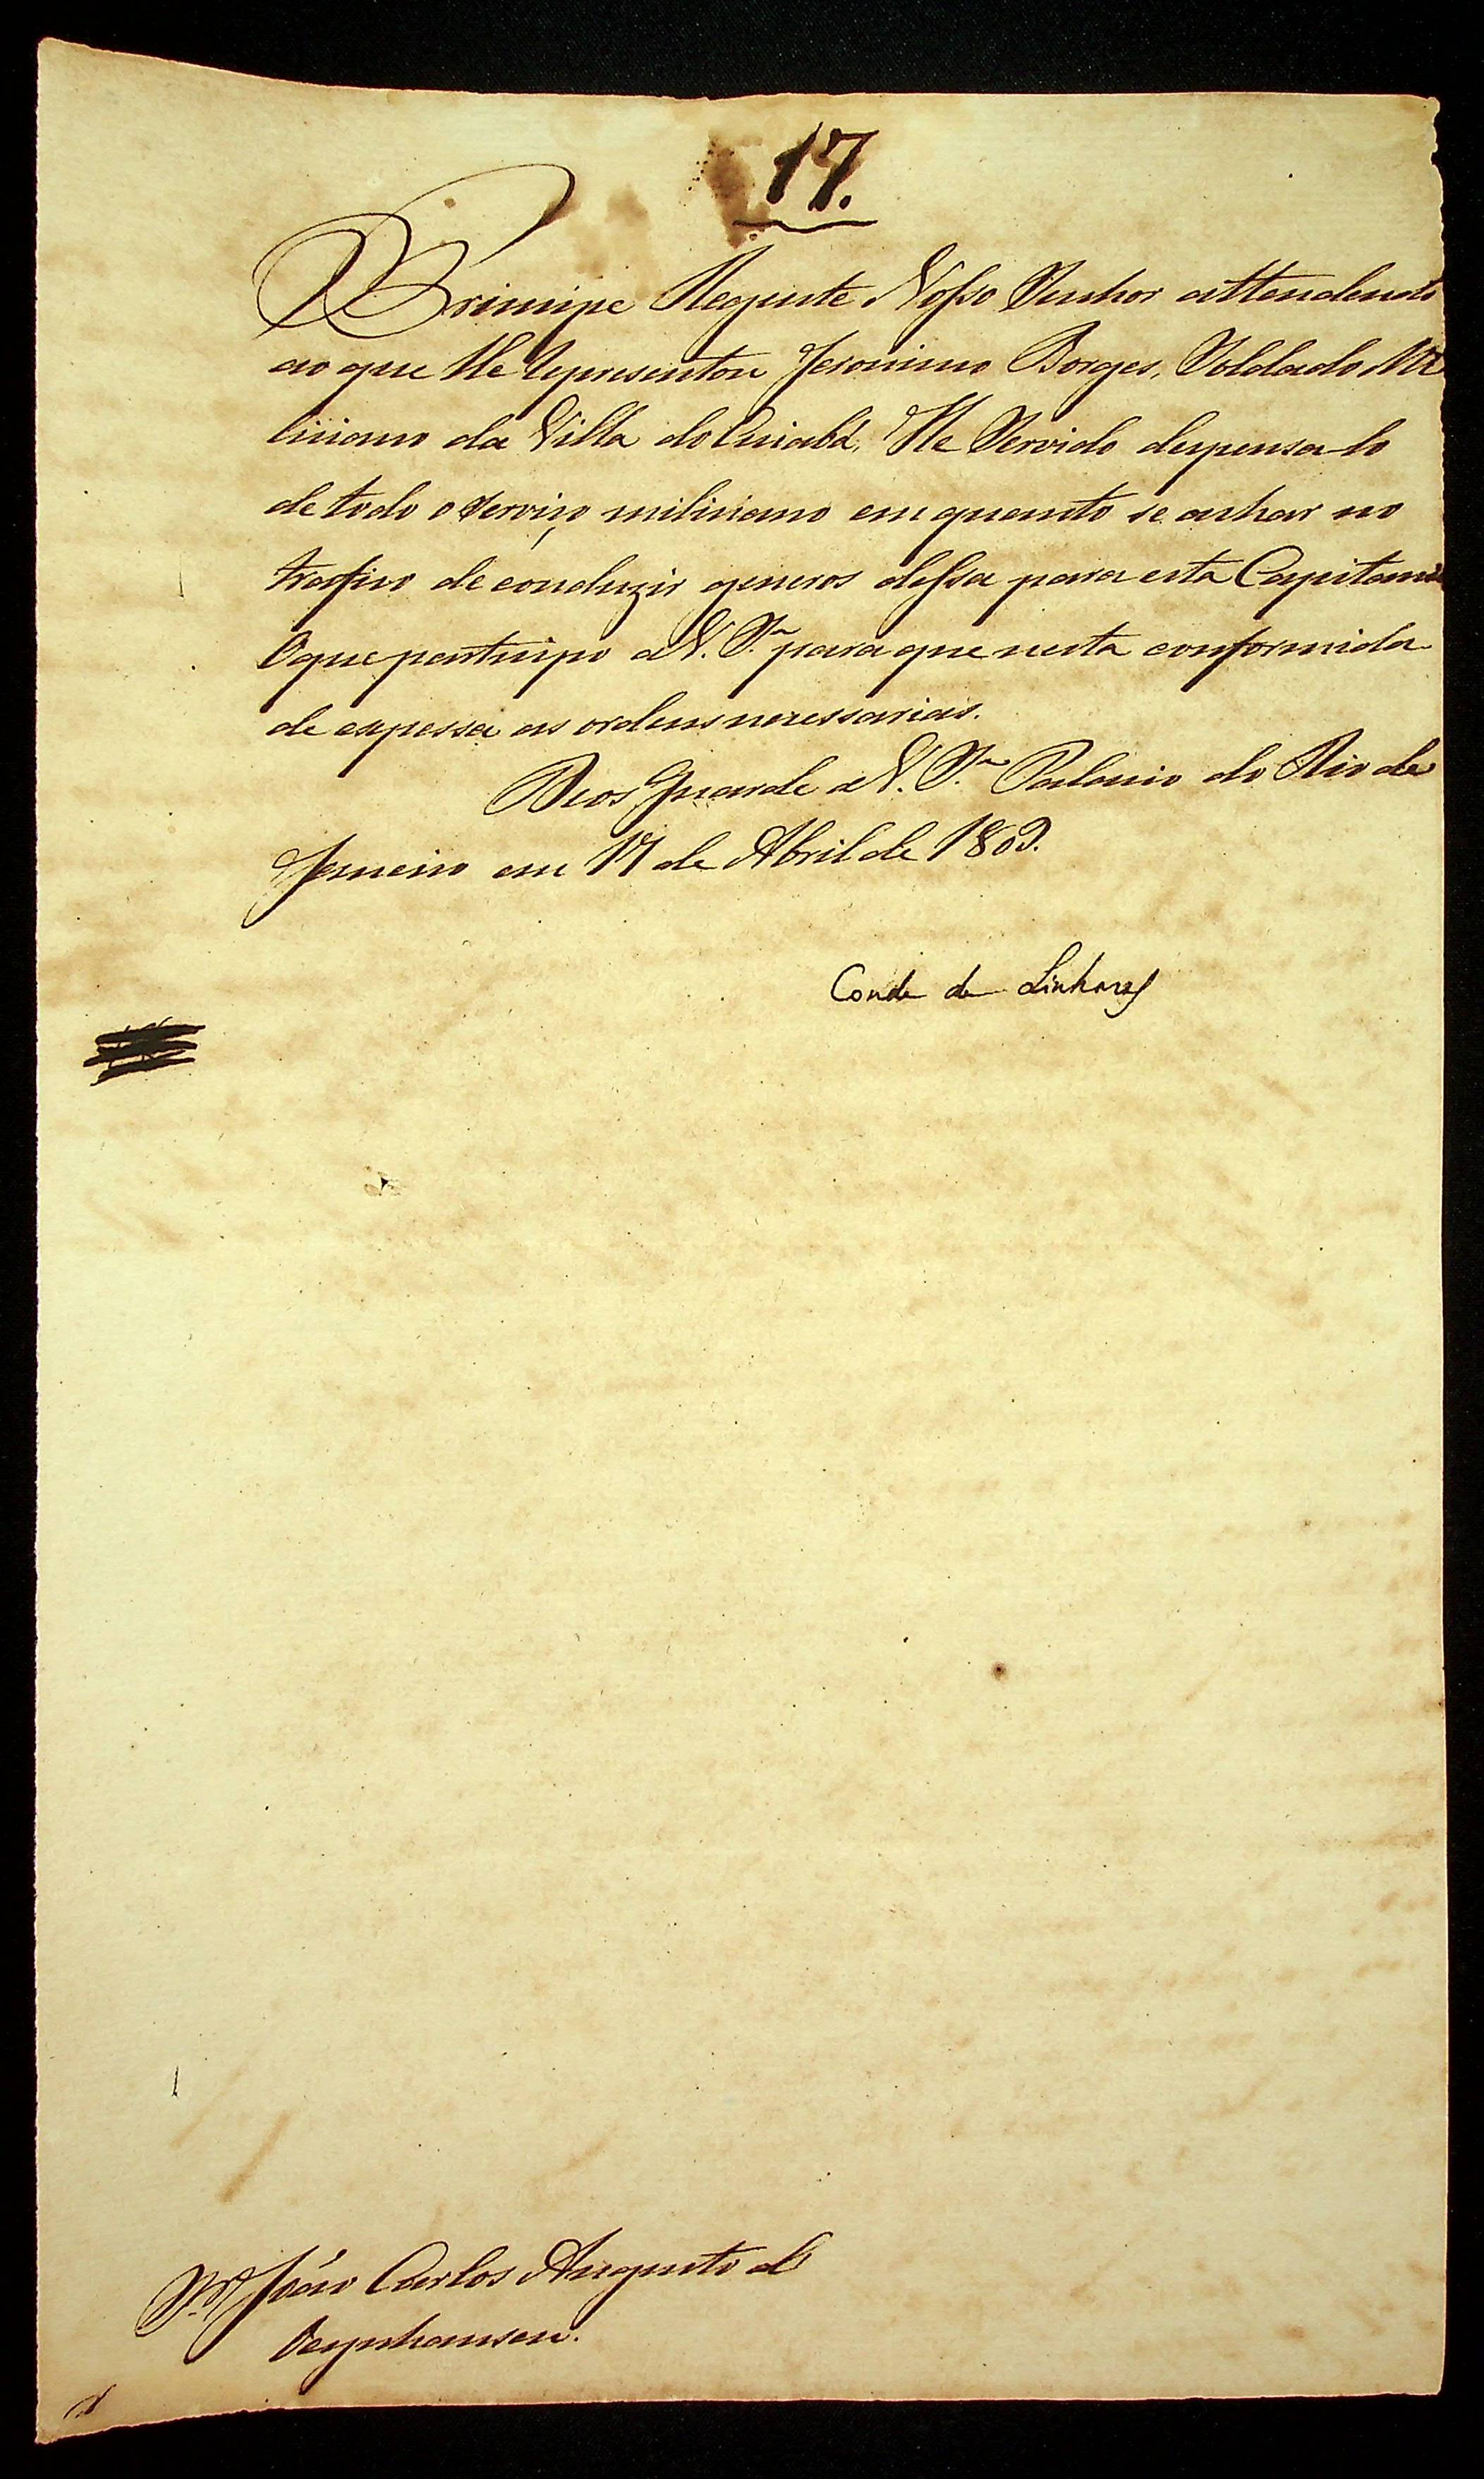 17.
O Principe Regente Nosso Senhor attendendo
ao que Lhe representou Jeronimo Borges, Soldado Mi
liciano da Villa do Cuiabá, He Servido despensa-lo
de todo o serviço miliciano em quanto se achar no
trafico de conduzir generos dessa para esta Capitania
O que participo a V. S.ª para que nesta conformida
de expessa as ordens necessarias.
Deos Guarde a V. S.ª Palacio do Rio de
Janeiro em 17 de Abril de 1809.
Conde de Linhares
S.r João Carlos Augusto d'
Oeynhausen.